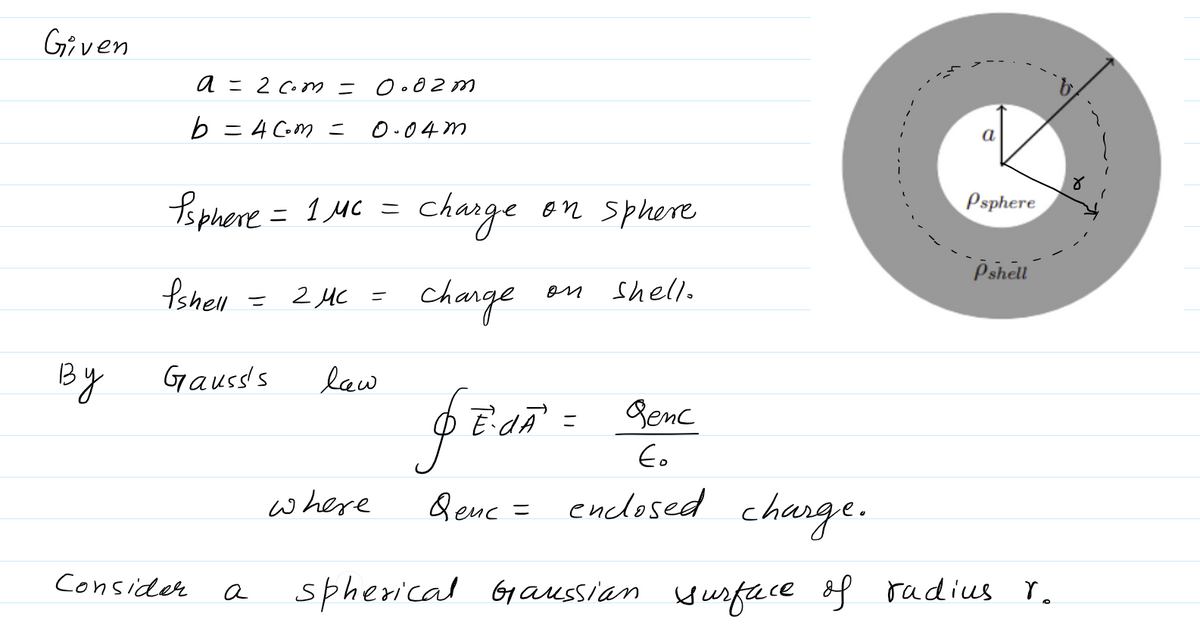 Given
a = 2 c.m = 0.02 m
b = 4 c.m = 0.04 m
ρsphere = 1 μC = charge on sphere
ρshell = 2 μC = charge on shell.
By Gauss's law
∮ E⃗·dA⃗ = Qenc / ϵ₀
where Qenc = enclosed charge.
Consider a spherical Gaussian surface of radius r.
b
a
r
ρsphere
ρshell